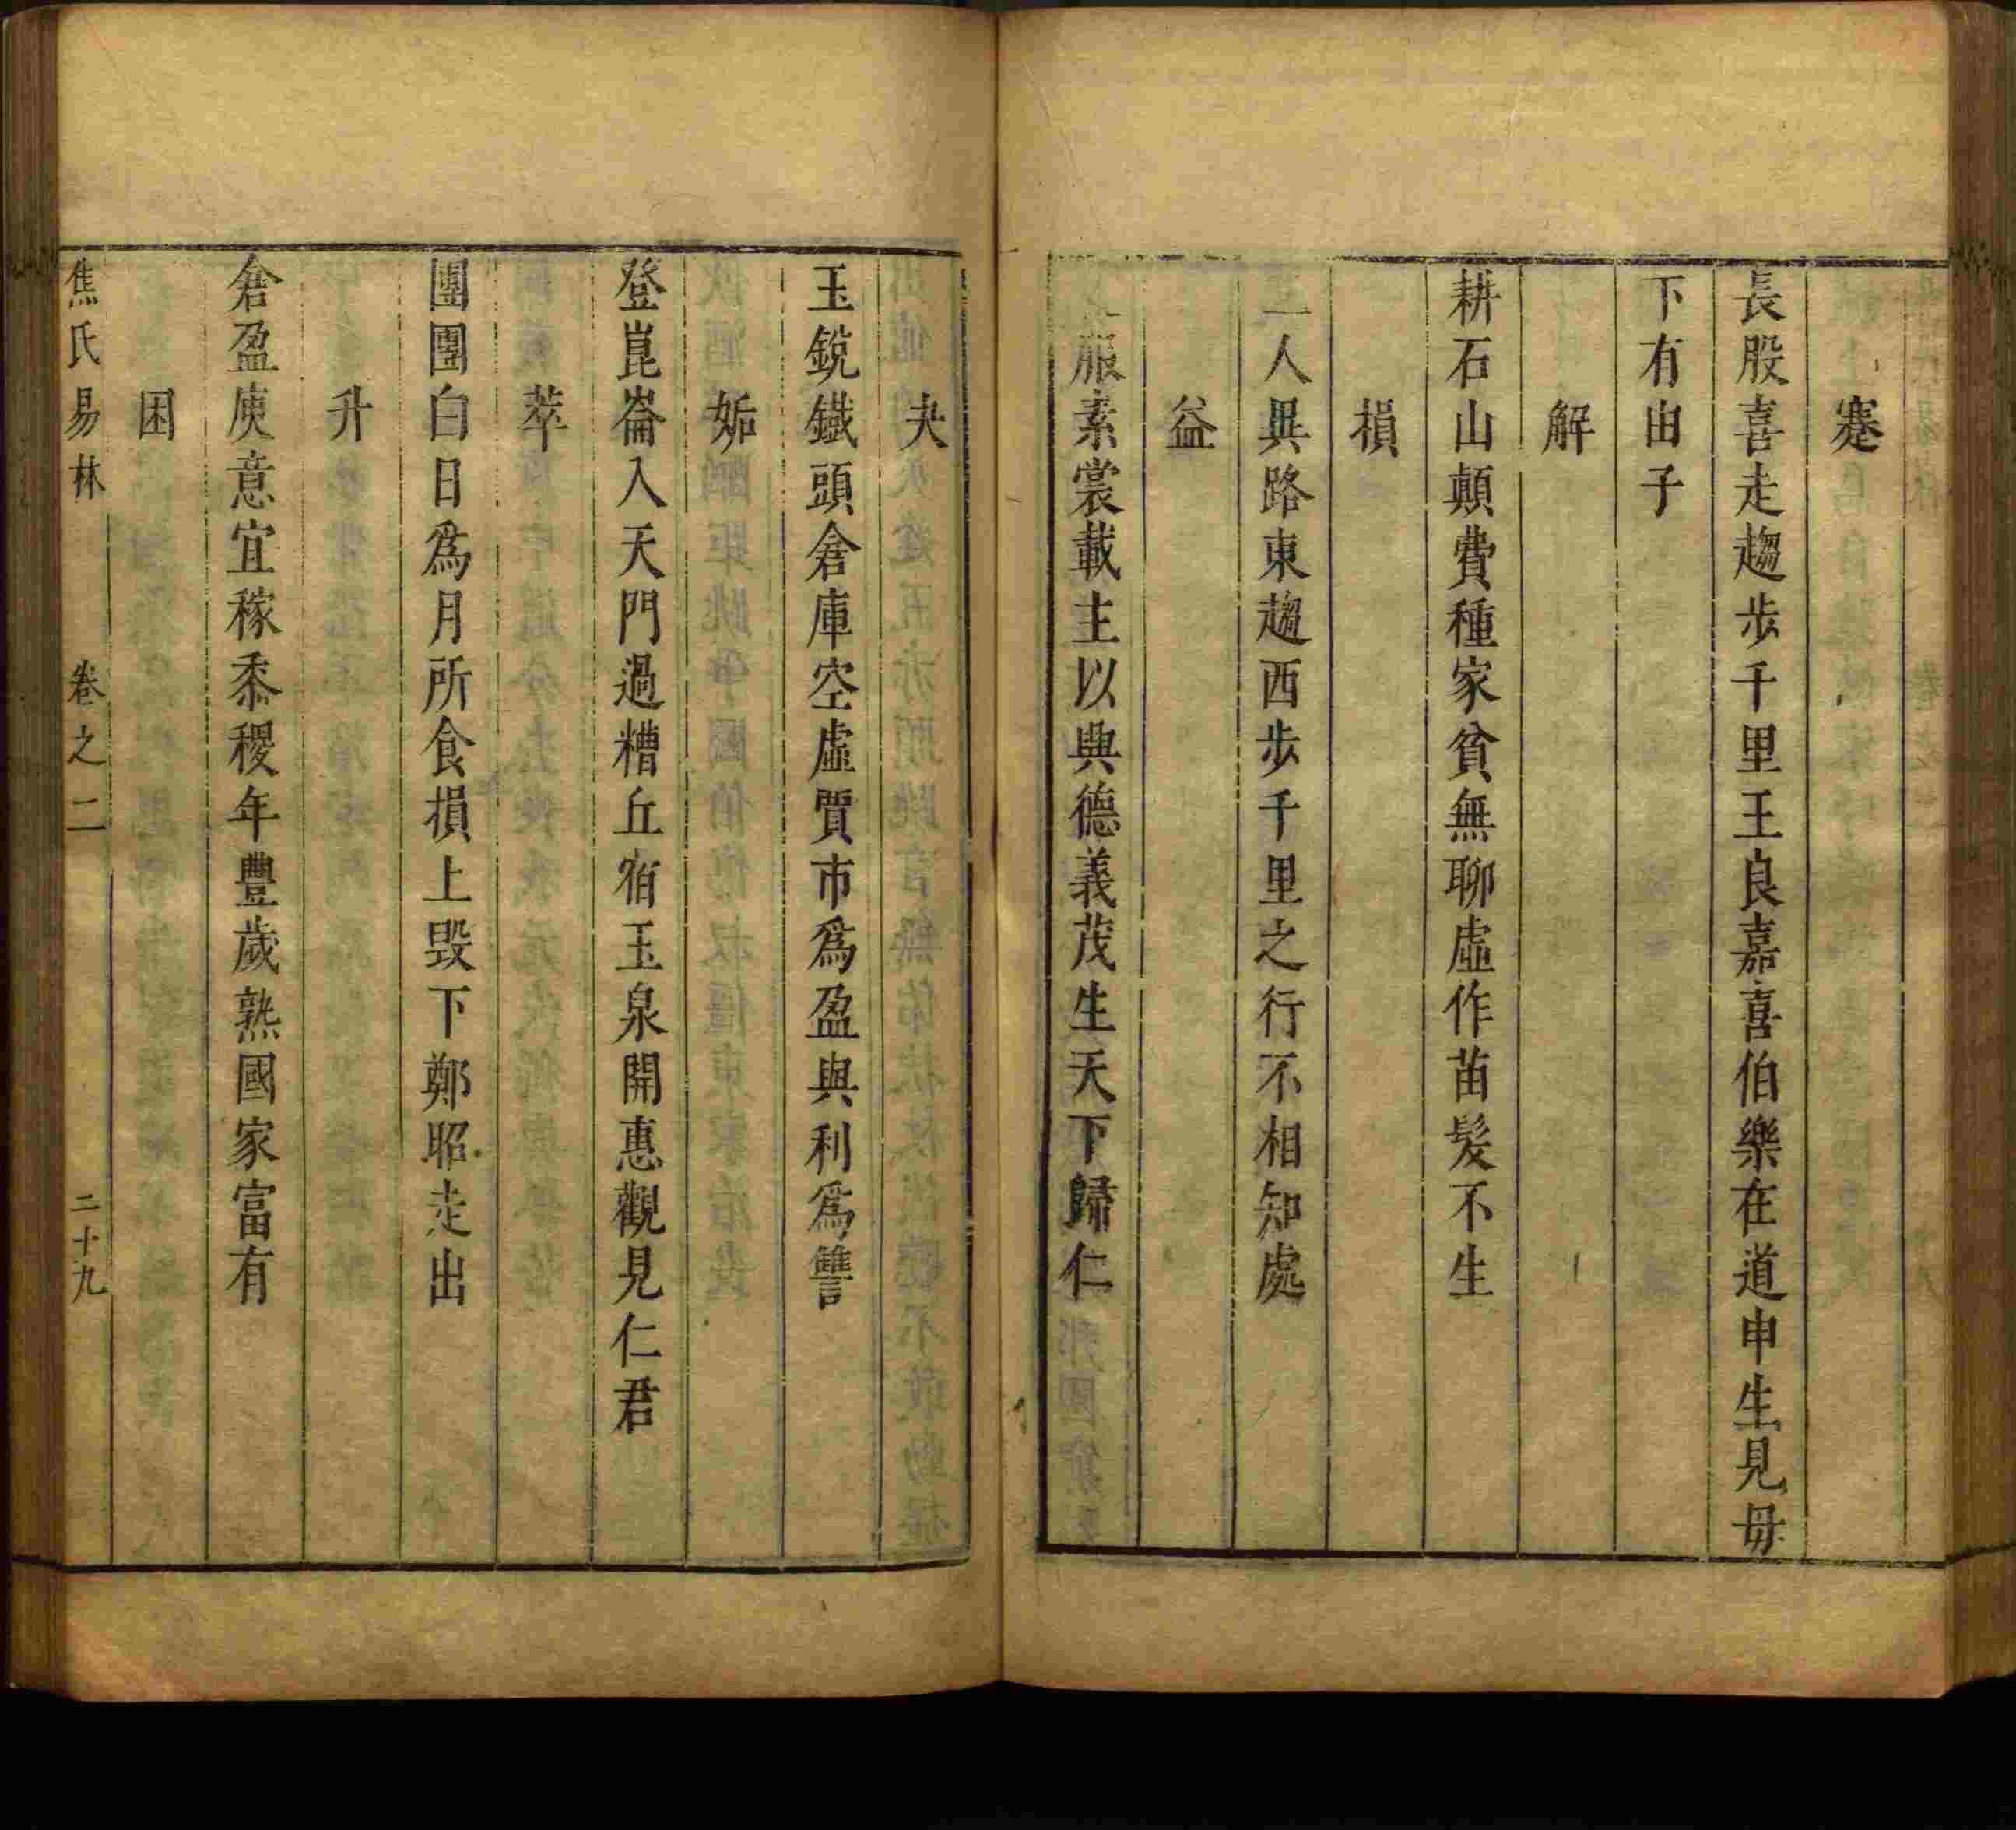 蹇
長股喜走趨步千里王良嘉喜伯樂在道申生見毋
下有由子
解
耕石山顛費種家貧無聊虛作苗髮不生
損
人異路東趨西步千里之行不相知處
益
服素裳載主以興德義茂生天下歸仁
夬
玉銳鐵頭倉庫空虛賈市為盈與利為讐
姤
登崑崙入天門過糟丘宿玉泉開惠觀見仁君
萃
團團白日為月所食損上毀下鄭昭走出
升
倉盈庾意宜稼黍稷年豐歲熟國家富有
困
焦氏易林 卷之二 二十九